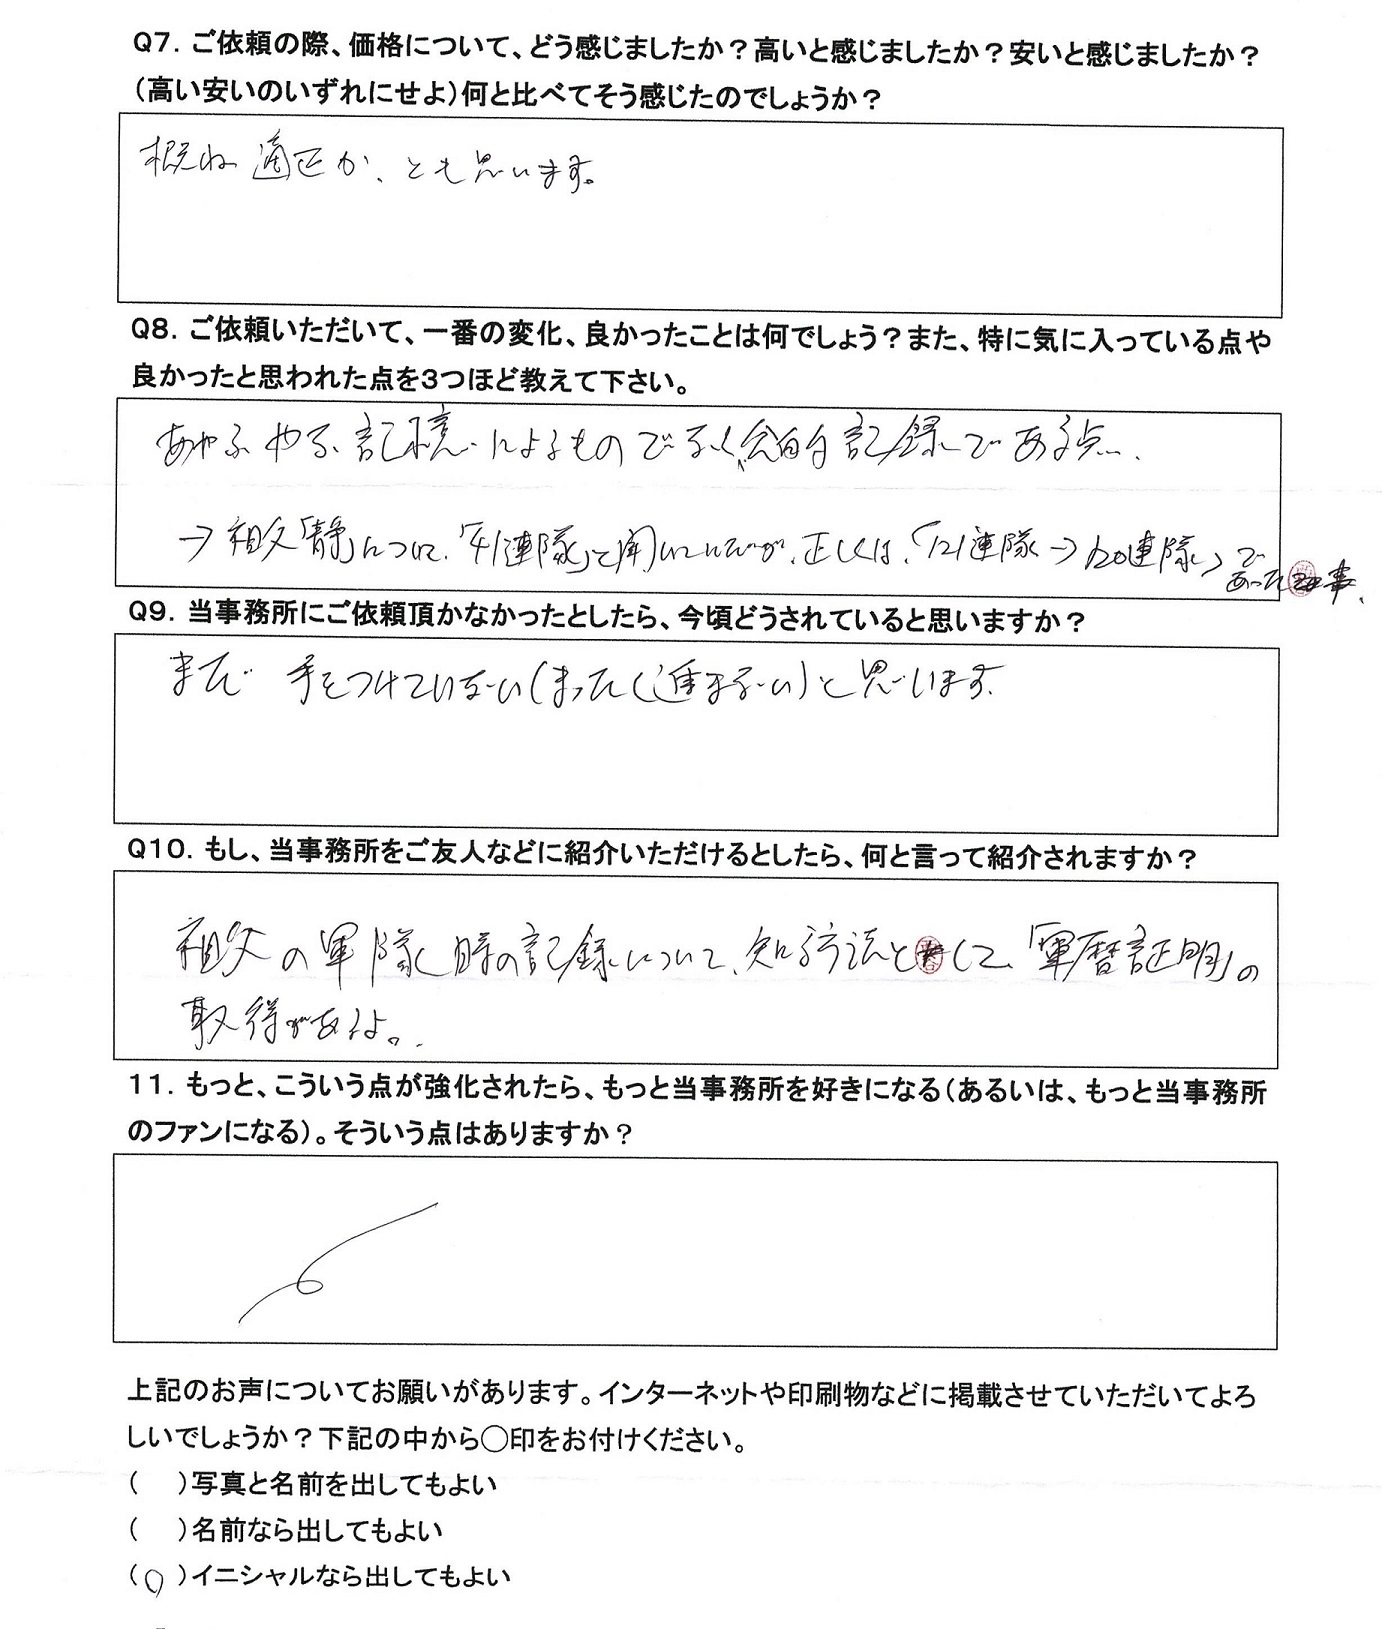 Q7．ご依頼の際、価格について、どう感じましたか？高いと感じましたか？安いと感じましたか？
（高い安いのいずれにせよ）何と比べてそう感じたのでしょうか？
概ね適正か、とも思います。
Q8．ご依頼いただいて、一番の変化、良かったことは何でしょう？また、特に気に入っている点や
良かったと思われた点を３つほど教えて下さい。
あやふやな記憶によるものでなく、公的記録である点、
→祖父「静」について、「41連隊」と聞いていたが、正しくは、「121連隊→120連隊」で
あった事、
Q9．当事務所にご依頼頂かなかったとしたら、今頃どうされていると思いますか？
まだ 手をつけていない（まったく進まない）と思います。
Q10．もし、当事務所をご友人などに紹介いただけるとしたら、何と言って紹介されますか？
祖父の軍隊時の記録について、知る方法として、「軍暦証明」の
取得があるよ。
11．もっと、こういう点が強化されたら、もっと当事務所を好きになる（あるいは、もっと当事務所
のファンになる）。そういう点はありますか？
上記のお声についてお願いがあります。インターネットや印刷物などに掲載させていただいてよろ
しいでしょうか？下記の中から○印をお付けください。
（　）写真と名前を出してもよい
（　）名前なら出してもよい
（○）イニシャルなら出してもよい